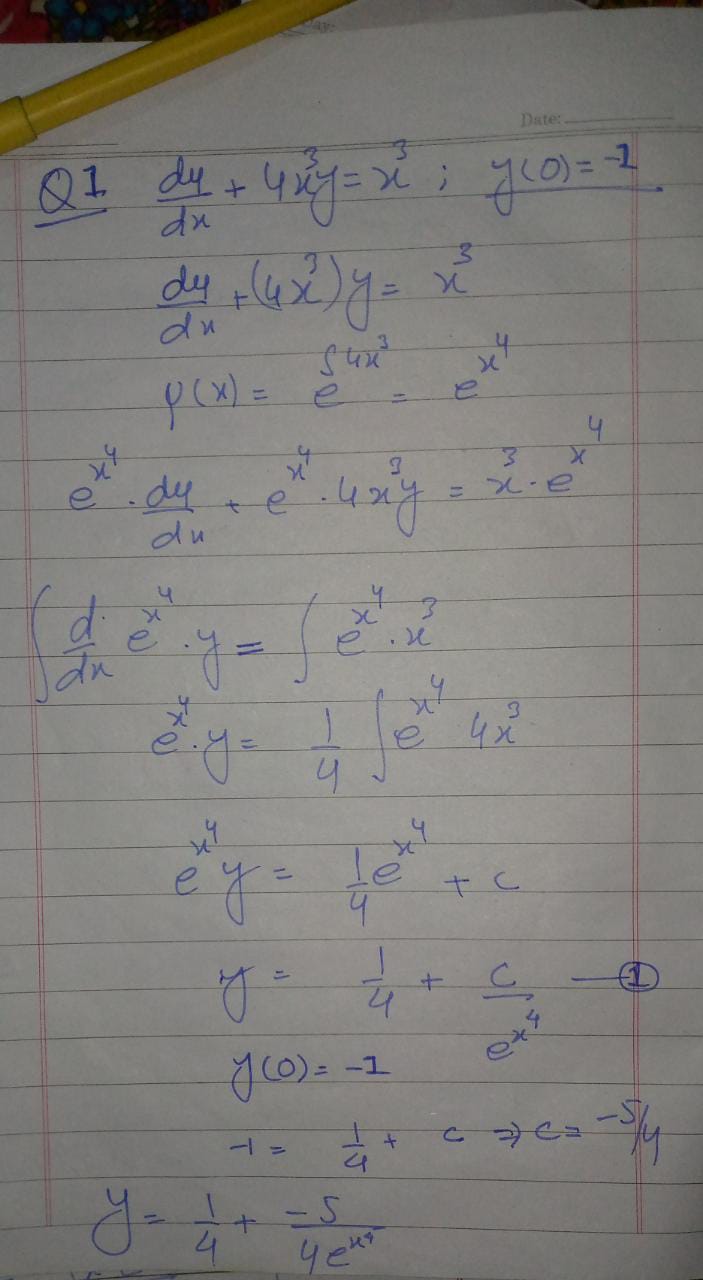 Date:
Q1 dy/dx + 4x³y = x³ ; y(0) = -1
dy/dx + (4x³)y = x³
ρ(x) = e^∫4x³ = e^x⁴
e^x⁴ · dy/dx + e^x⁴ · 4x³y = x³ · e^x⁴
∫ d/dx e^x⁴ · y = ∫ e^x⁴ · x³
e^x⁴ · y = 1/4 ∫ e^x⁴ 4x³
e^x⁴ y = 1/4 e^x⁴ + c
y = 1/4 + c/e^x⁴ — ①
y(0) = -1
-1 = 1/4 + c ⇒ c = -5/4
y = 1/4 + -5/4e^x⁴